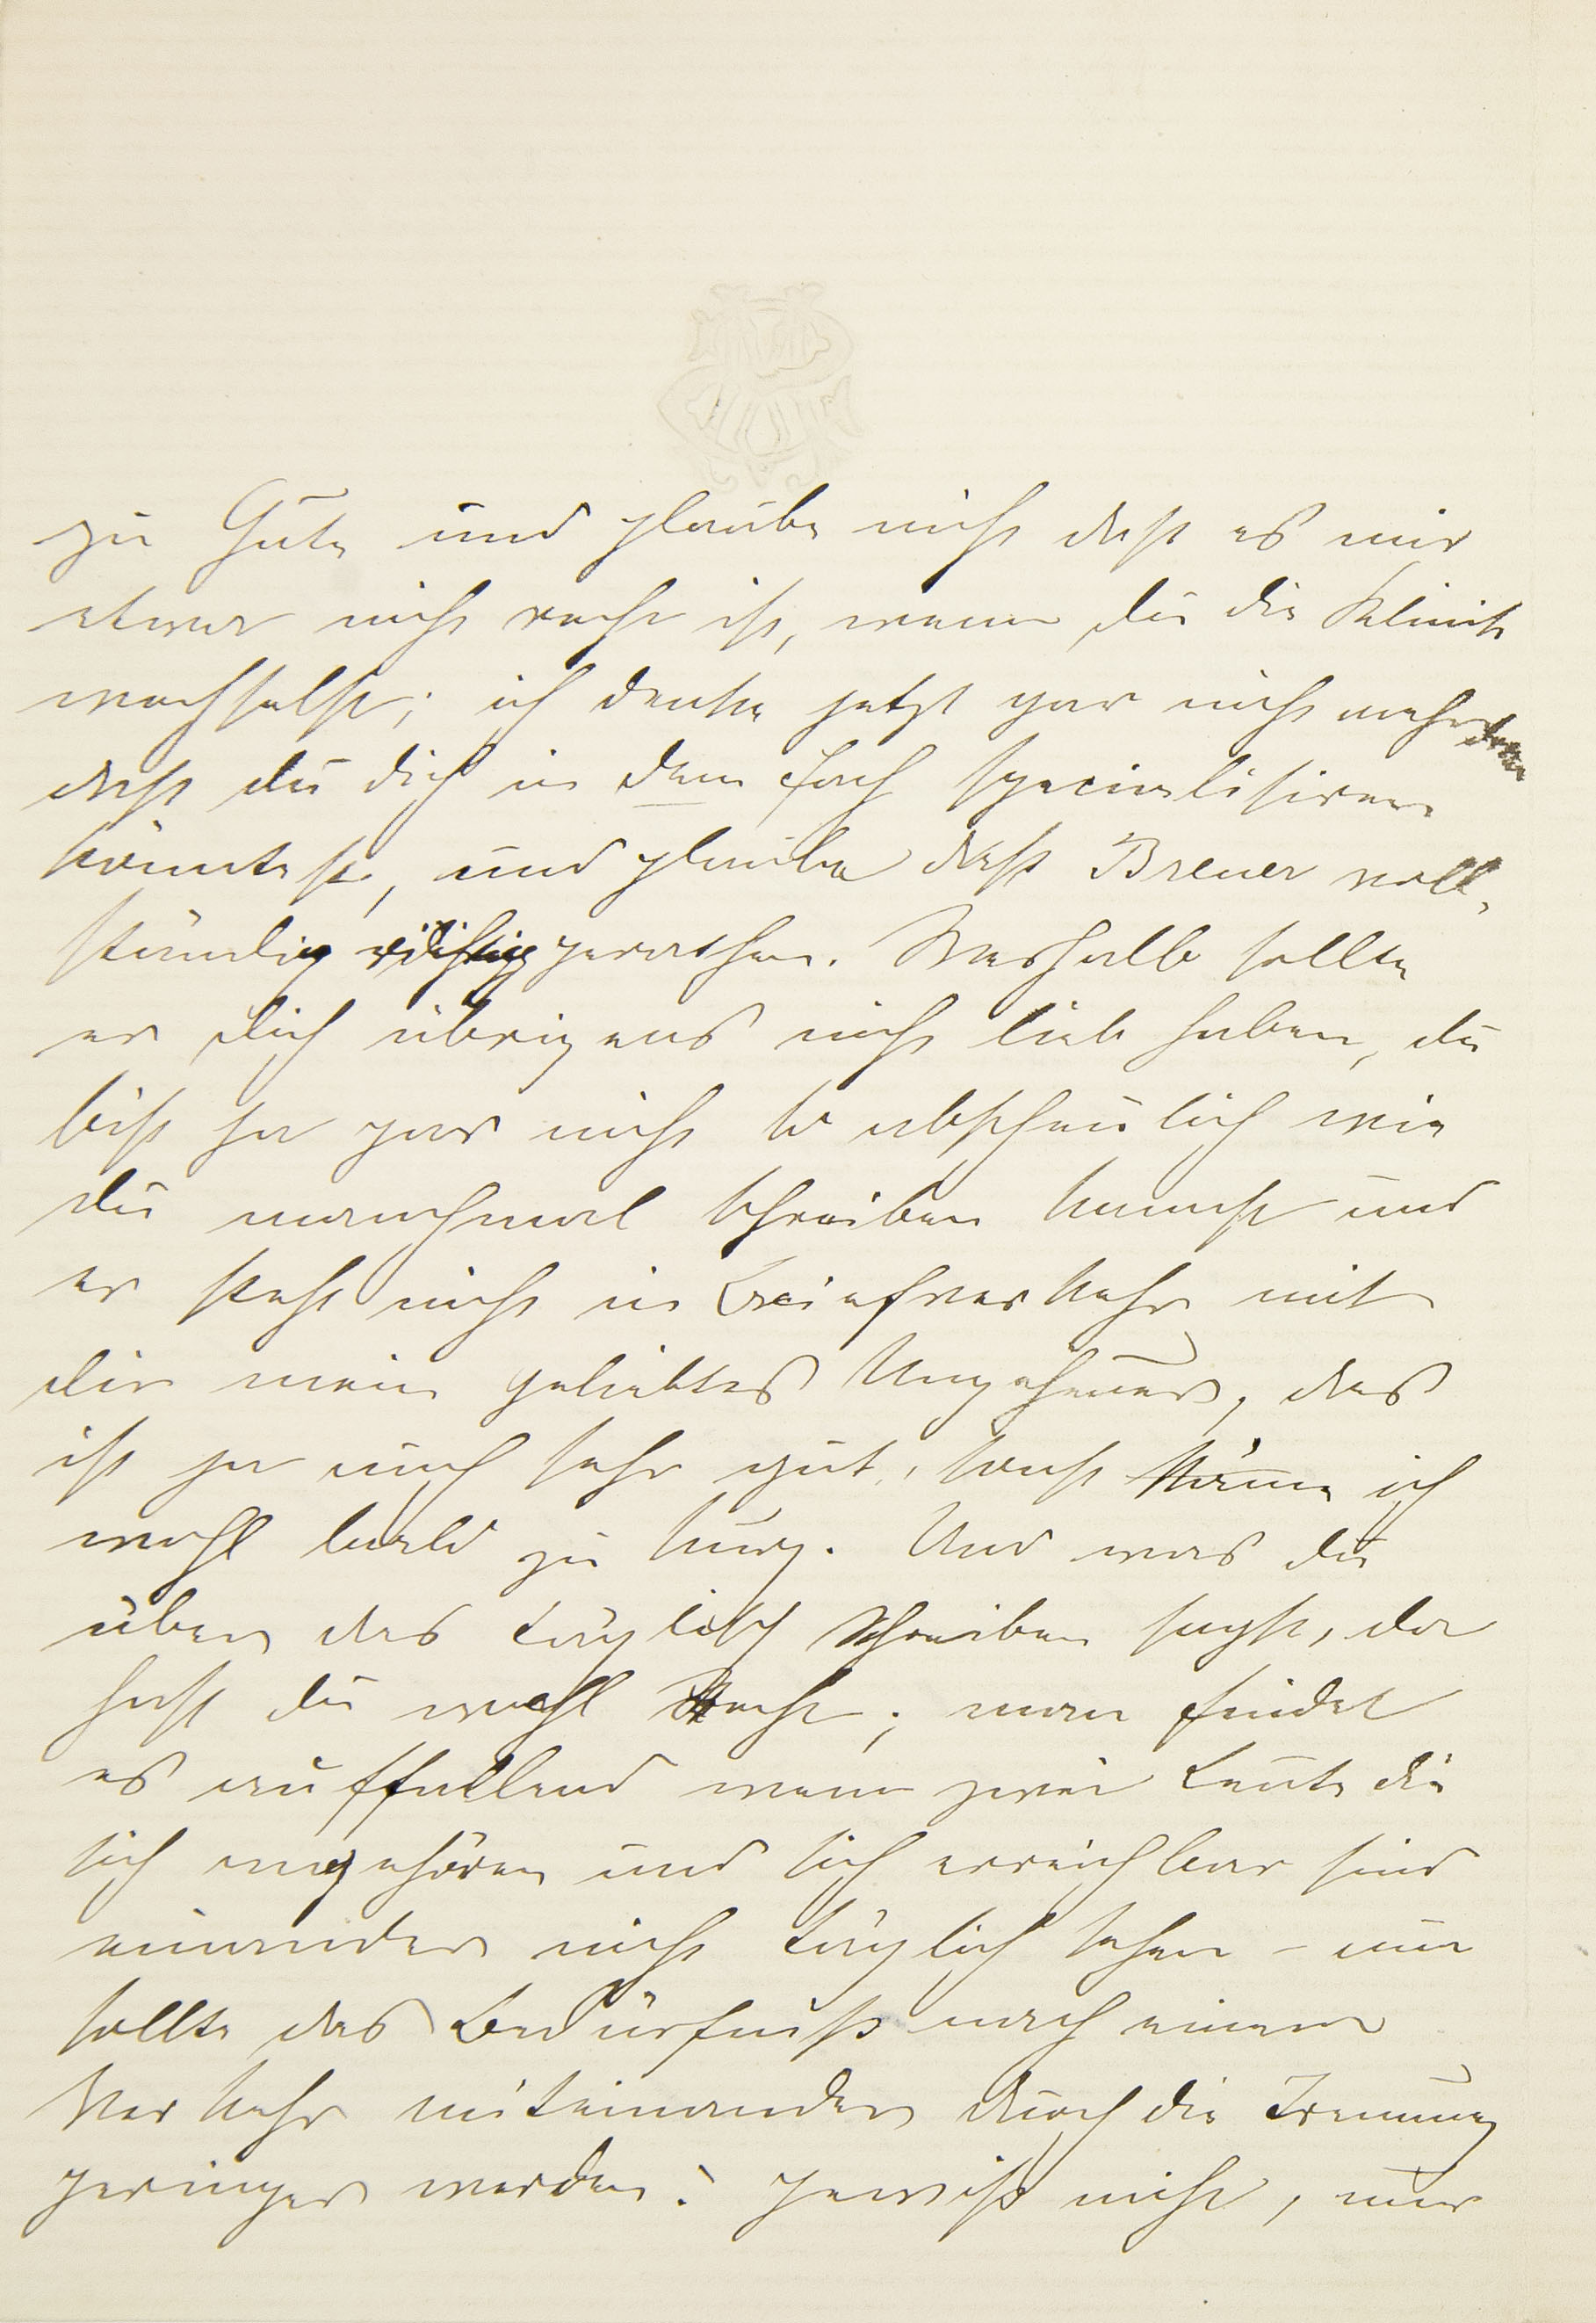 zu Gute und glaube nicht daß es mir
etwa nicht recht ist, wenn du die Klinik
wechselst; ich denke jetzt gar nicht mehr
daß du dich in dem Fach specialisiren
könntest, und glaube daß Breuer voll-
ständig richtig gerathen. Weshalb sollte
er dich übrigens nicht lieb haben, du
bist ja gar nicht so abscheulich wie
du manchmal schreiben kannst und
er steht nicht in Briefverkehr mit
dir mein geliebtes Ungeheuer, das
ist ja auch sehr gut, sonst käme ich
wohl bald zu kurz. Und was du
über das täglich schreiben sagst, da
hast du wohl Recht; man findet
es auffallend wenn zwei Leute die
sich angehören und sich erreichbar sind
einander nicht täglich sehen – nun
sollte das Bedürfniß nach einem
Verkehr miteinander durch die Trennung
geringer werden? gewiß nicht, nur